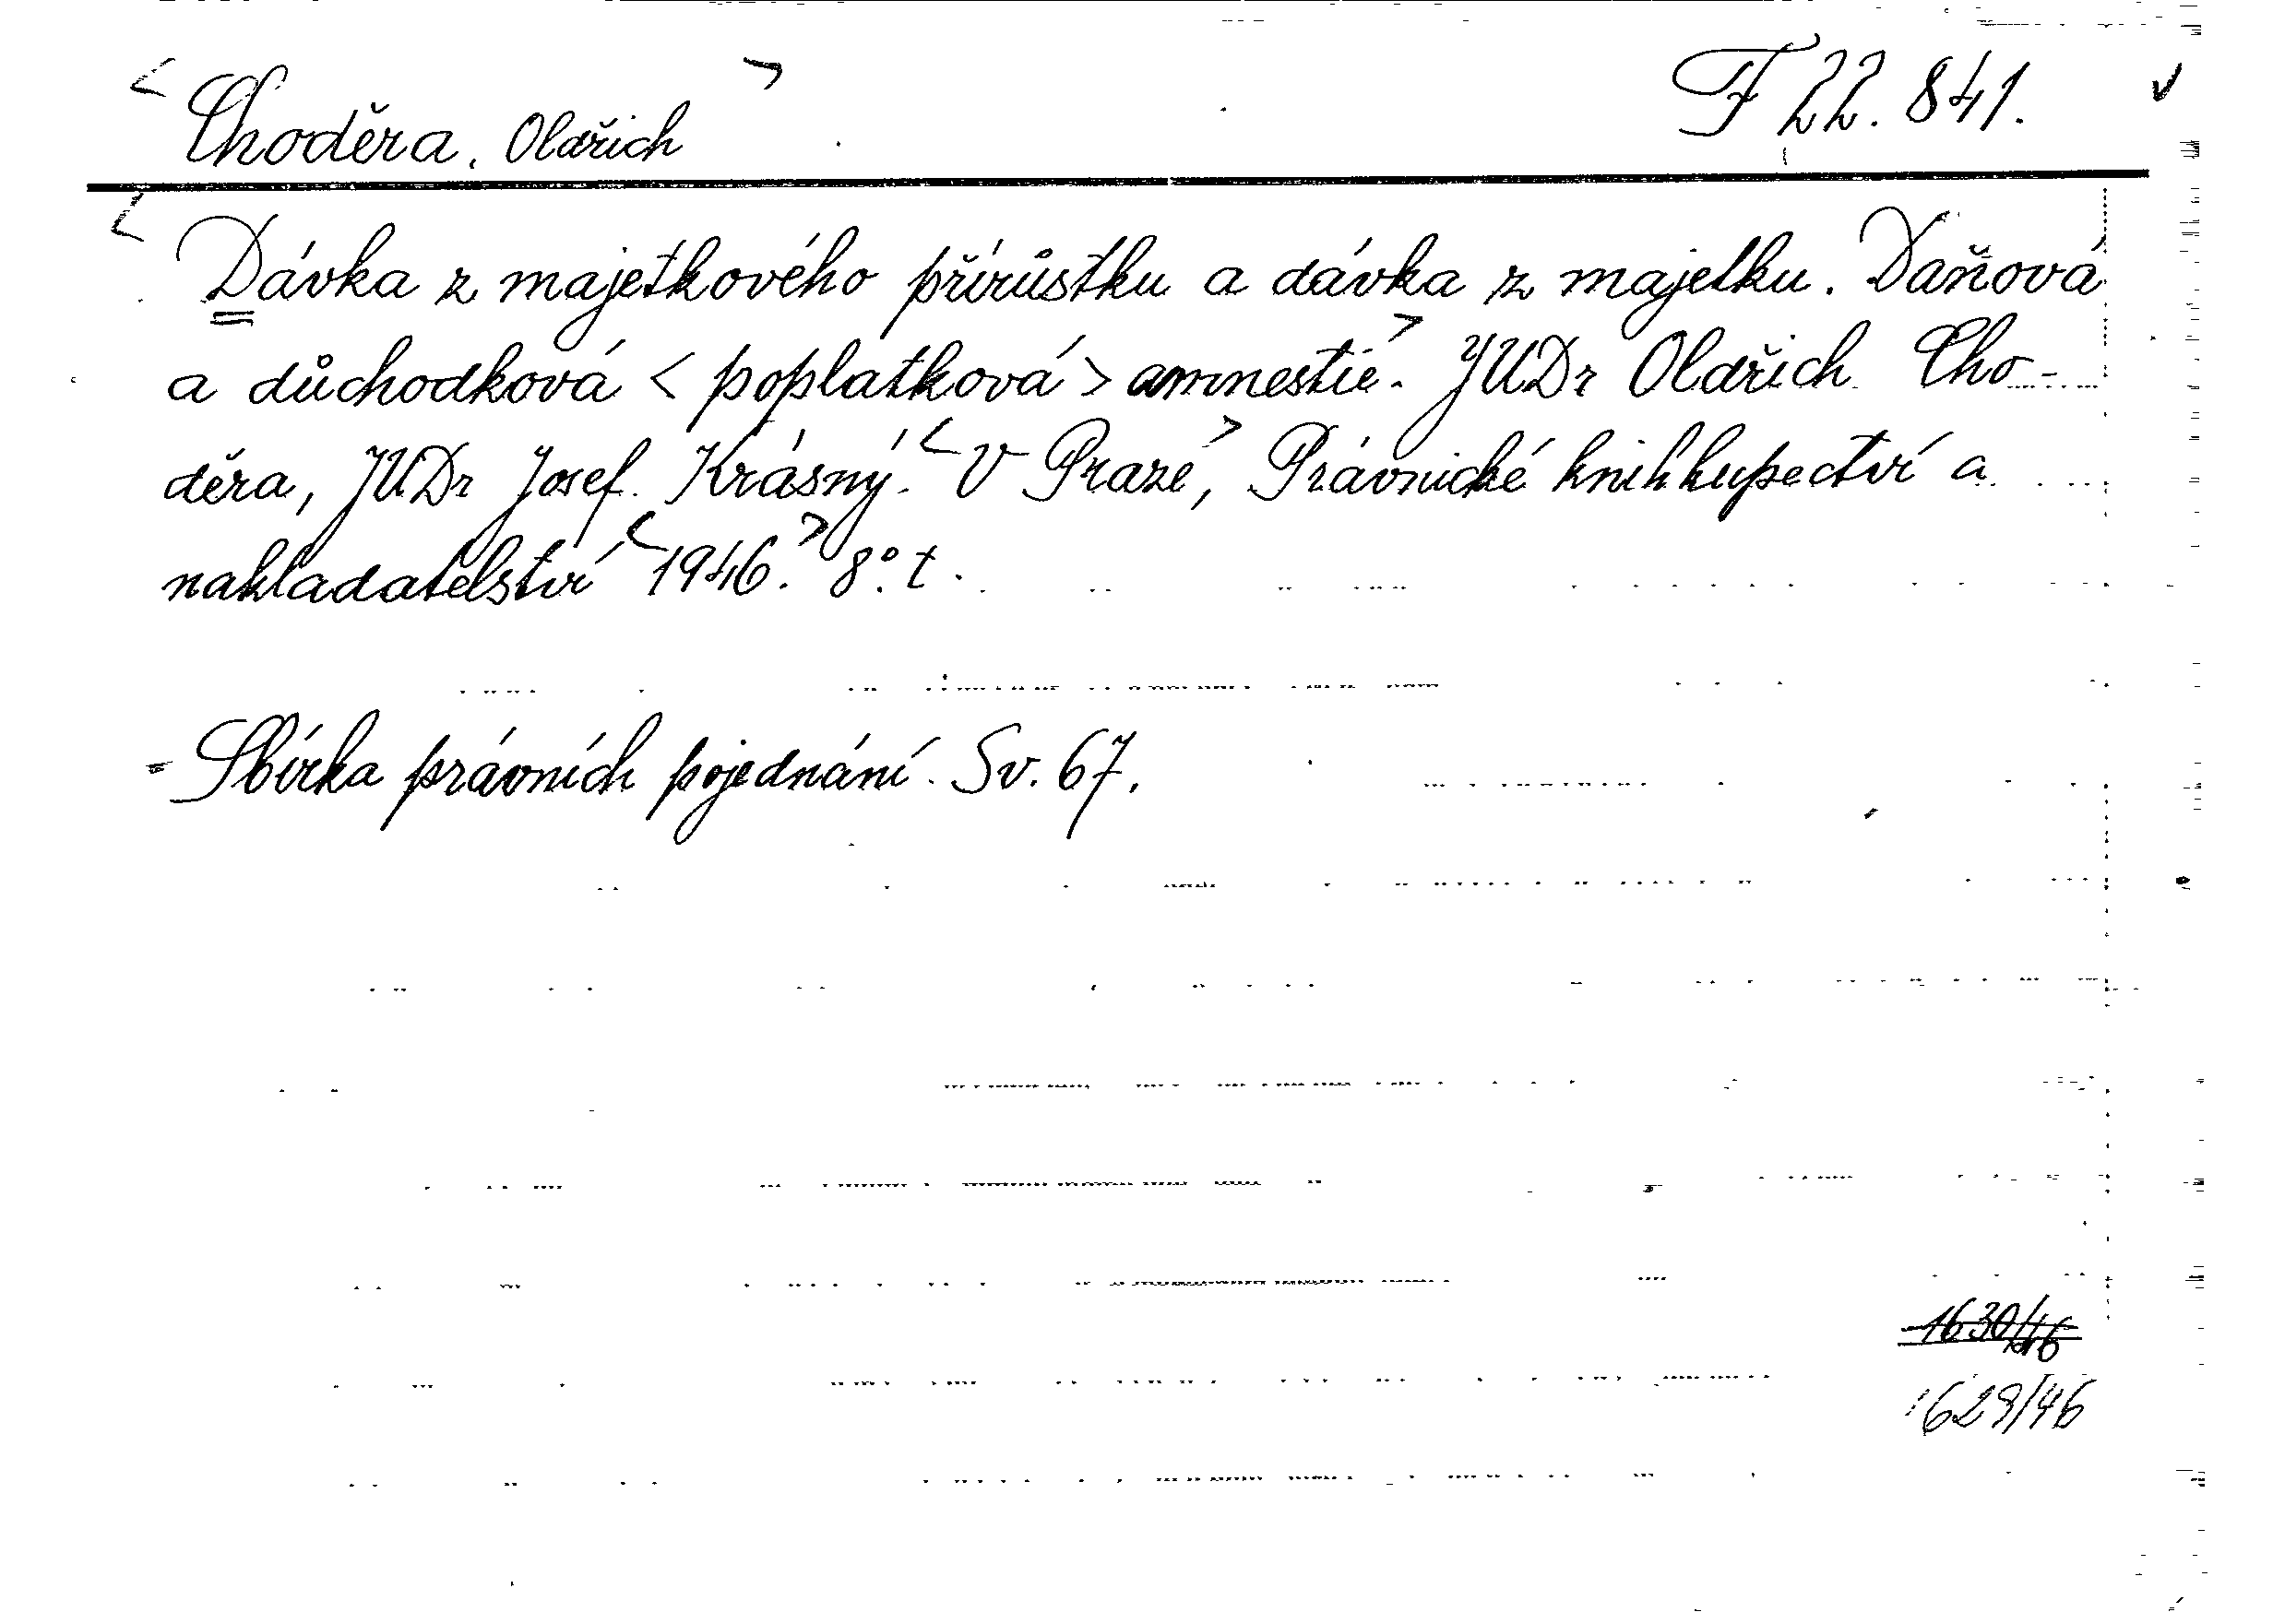 < Choděra, Oldřich > F 22.841.
< Dávka z majetkového přírůstku a dávka z majetku. Daňová
a důchodková < poplatková > amnestie.> JUDr Oldřich Cho-
děra, JUDr Josef Krásný. < V Praze >, Právnické knihkupectví a
nakladatelství < 1946. > 8°. t.
= Sbírka právních pojednání. Sv. 67.
1630/46
1629/46